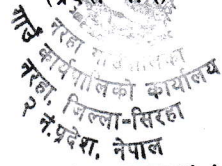 नरहा गाउँपालिका
गाउँ कार्यपालिकाको कार्यालय
नरहा, जिल्ला-सिरहा
२ नं.प्रदेश, नेपाल